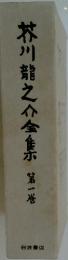 芥川龍之介全集
第一巻
岩波書店